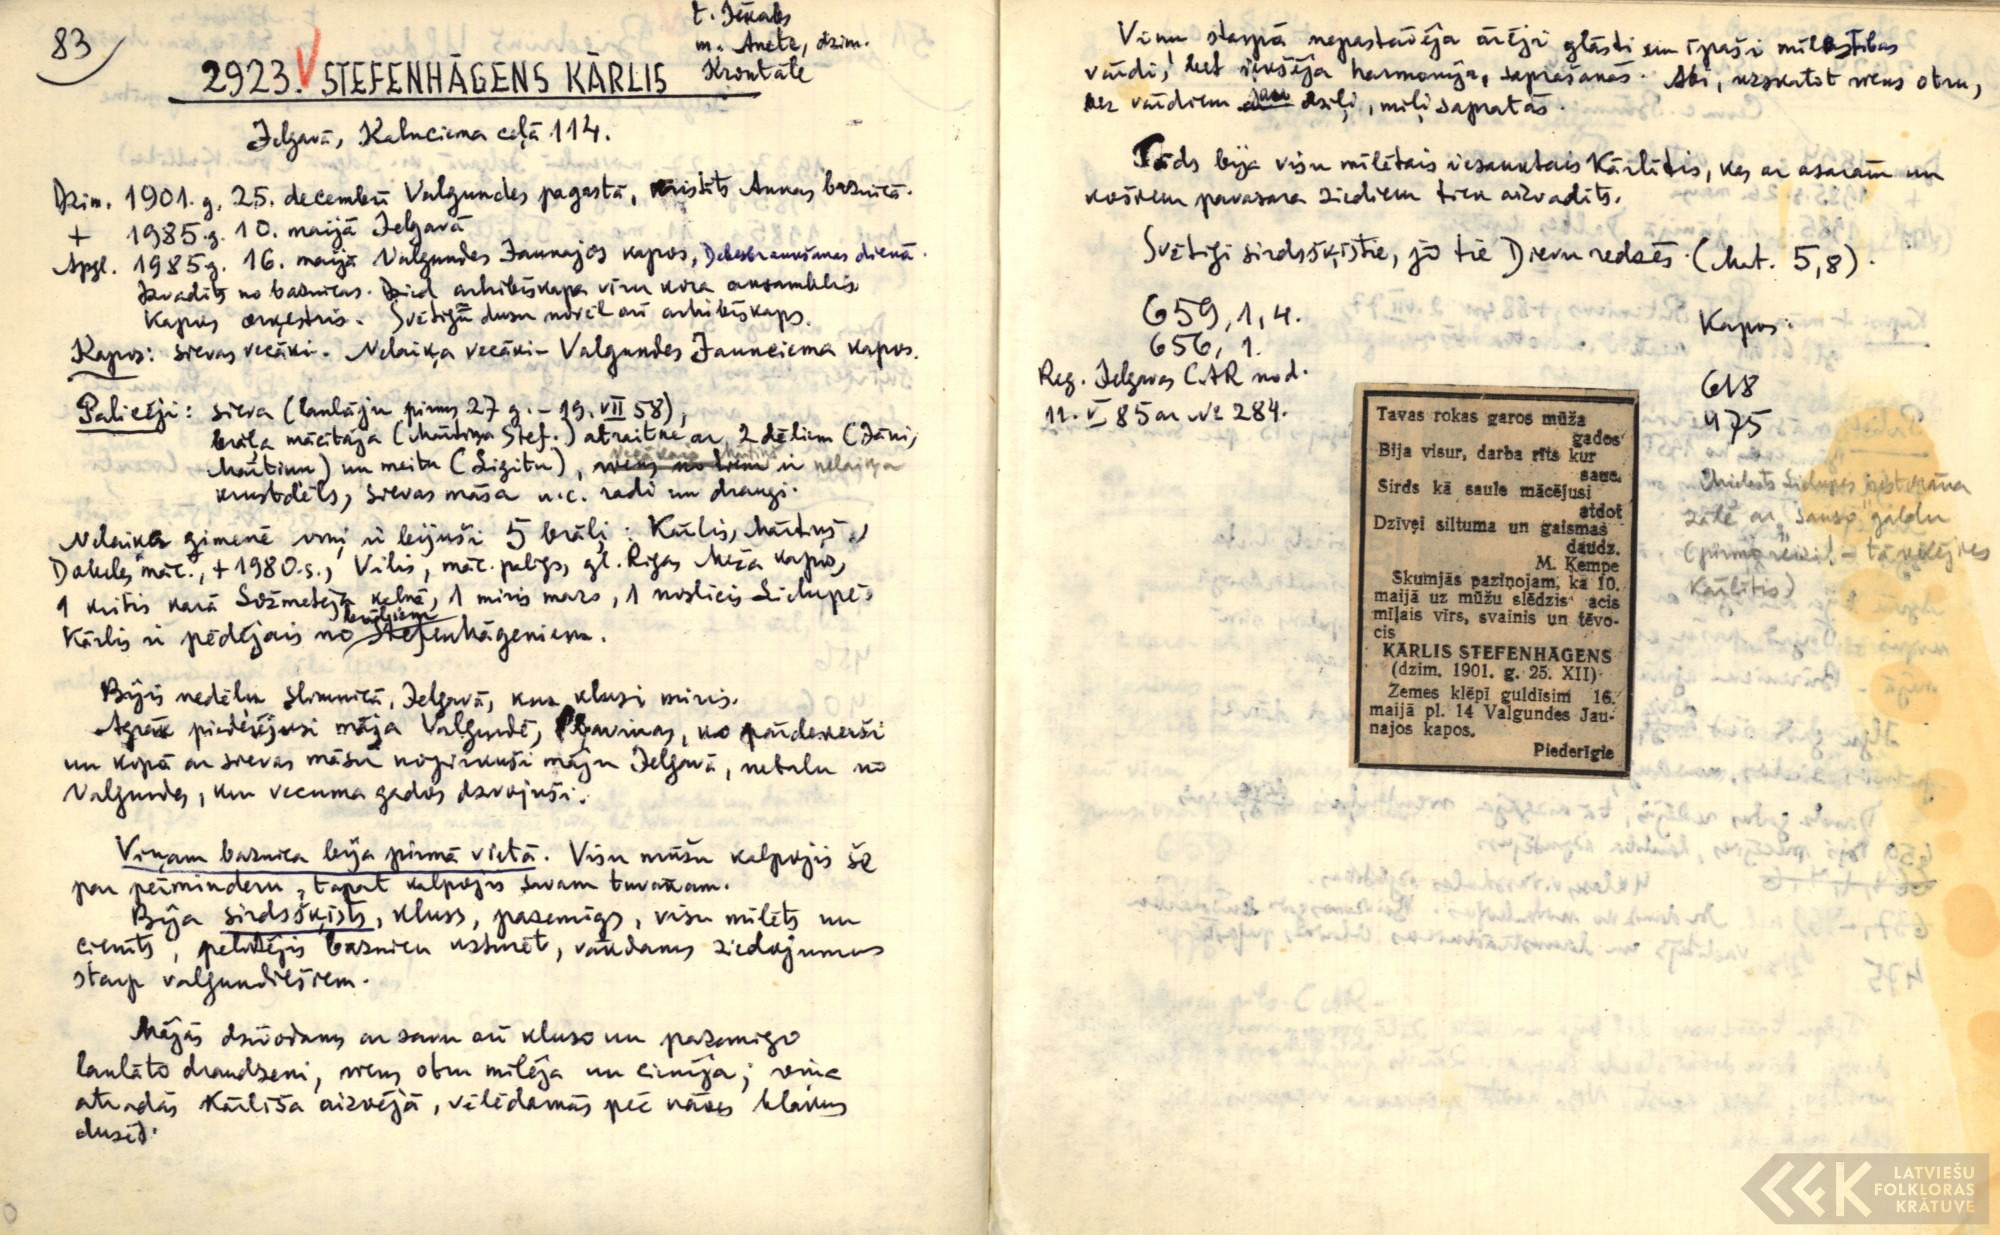 83
t. Jēkabs
m. Anete, dzim.
Krontāle
2923. STEFENHĀGENS KĀRLIS
Jelgavā, Kalnciema ceļā 114.
Dzim. 1901. g. 25. decembrī Valgundes pagastā, kristīts Annas baznīcā.
+ 1985.g. 10. maijā Jelgavā
Apgl. 1985.g. 16. maijā Valgundes Jaunajos kapos, Debesbraukšanas dienā.
Izvadīts no baznīcas. Dzied arhibīskapa vīru kora ansamblis
Kapos orķestris. Svētīgu dusu novēl arī arhibīskaps.
Kapos: sievas vecāki. Nelaiķa vecāki - Valgundes Jaunciema kapos.
Palicēji: sieva (laulāju pirms 27 g. - 19. VII 58),
brāļa mācītāja (Mārtiņa Stef.) atraitne ar 2 dēliem (Jāni,
Mārtiņu) un meitu (Ligitu), viens no tiem ir nelaiķa
krustdēls, sievas māsa u.c. radi un draugi.
Nelaiķa ģimenē viņi ir bijuši 5 brāļi: Kārlis, Mārtiņš,
Dobeles māc., + 1980.s., Vilis, māc. palīgs, gl. Rīgas Meža kapos,
1 kritis karā Ložmetēja kalnā, 1 miris mazs, 1 noslīcis Lielupē.
Kārlis ir pēdējais no brāļiem Stefenhāgeniem.
Bijis nedēļu slimnīcā, Jelgavā, kur klusi miris.
Agrāk piederējusi māja Valgundē, ko pārdevuši
un kopā ar sievas māsu nopirkuši māju Jelgavā, netālu no
Valgundes, kur vecuma gados dzīvojuši.
Viņam baznīca bija pirmā vietā. Visu mūžu kalpojis še
par pērminderu, tāpat kalpojis savam tuvākam.
Bija sirdsšķīsts, kluss, pazemīgs, visu mīlēts un
cienīts, palīdzējis baznīcu uzturēt, vākdams ziedojumus
starp valgundiešiem.
Mājās dzīvodams ar savu arī kluso un pazemīgo
laulāto draudzeni, viens otru mīlēja un cienīja; viņa
atradās Kārlīša aizvējā, vēlēdamās pēc nāves blakus
dusēt.
Viņu starpā nepastāvēja ārēji glāsti un īpaši mīlestības
vārdi, bet iekšēja harmonija, saprašanās. Abi, uzskatot viens otru,
bez vārdiem dziļi, mīļi sapratās.
Tāds bija visu mīlētais iesauktais Kārlītis, kas ar asarām un
košiem pavasara ziediem tiek aizvadīts.
Svētīgi sirdsšķīstie, jo tie Dievu redzēs. (Mat. 5,8).
659, 1, 4.
656, 1.
Reg. Jelgavas CAR nod.
11. V 85 ar № 284.
Kapos:
618
475
Mielasts Lielupes restorāna
zālē ar "sauso" galdu
(pirmo reizi! - tā vēlējies
Kārlītis)
Tavas rokas garos mūža
gados
Bija visur, darba rīts kur
sauc.
Sirds kā saule mācējusi
atdot
Dzīvei siltuma un gaismas
daudz.
M. Ķempe
Skumjās paziņojam, ka 10.
maijā uz mūžu slēdzis acis
mīļais vīrs, svainis un tēvo-
cis
KĀRLIS STEFENHĀGENS
(dzim. 1901. g. 25. XII)
Zemes klēpī guldīsim 16.
maijā pl. 14 Valgundes Jau-
najos kapos.
Piederīgie
LATVIEŠU
FOLKLORAS
KRĀTUVE